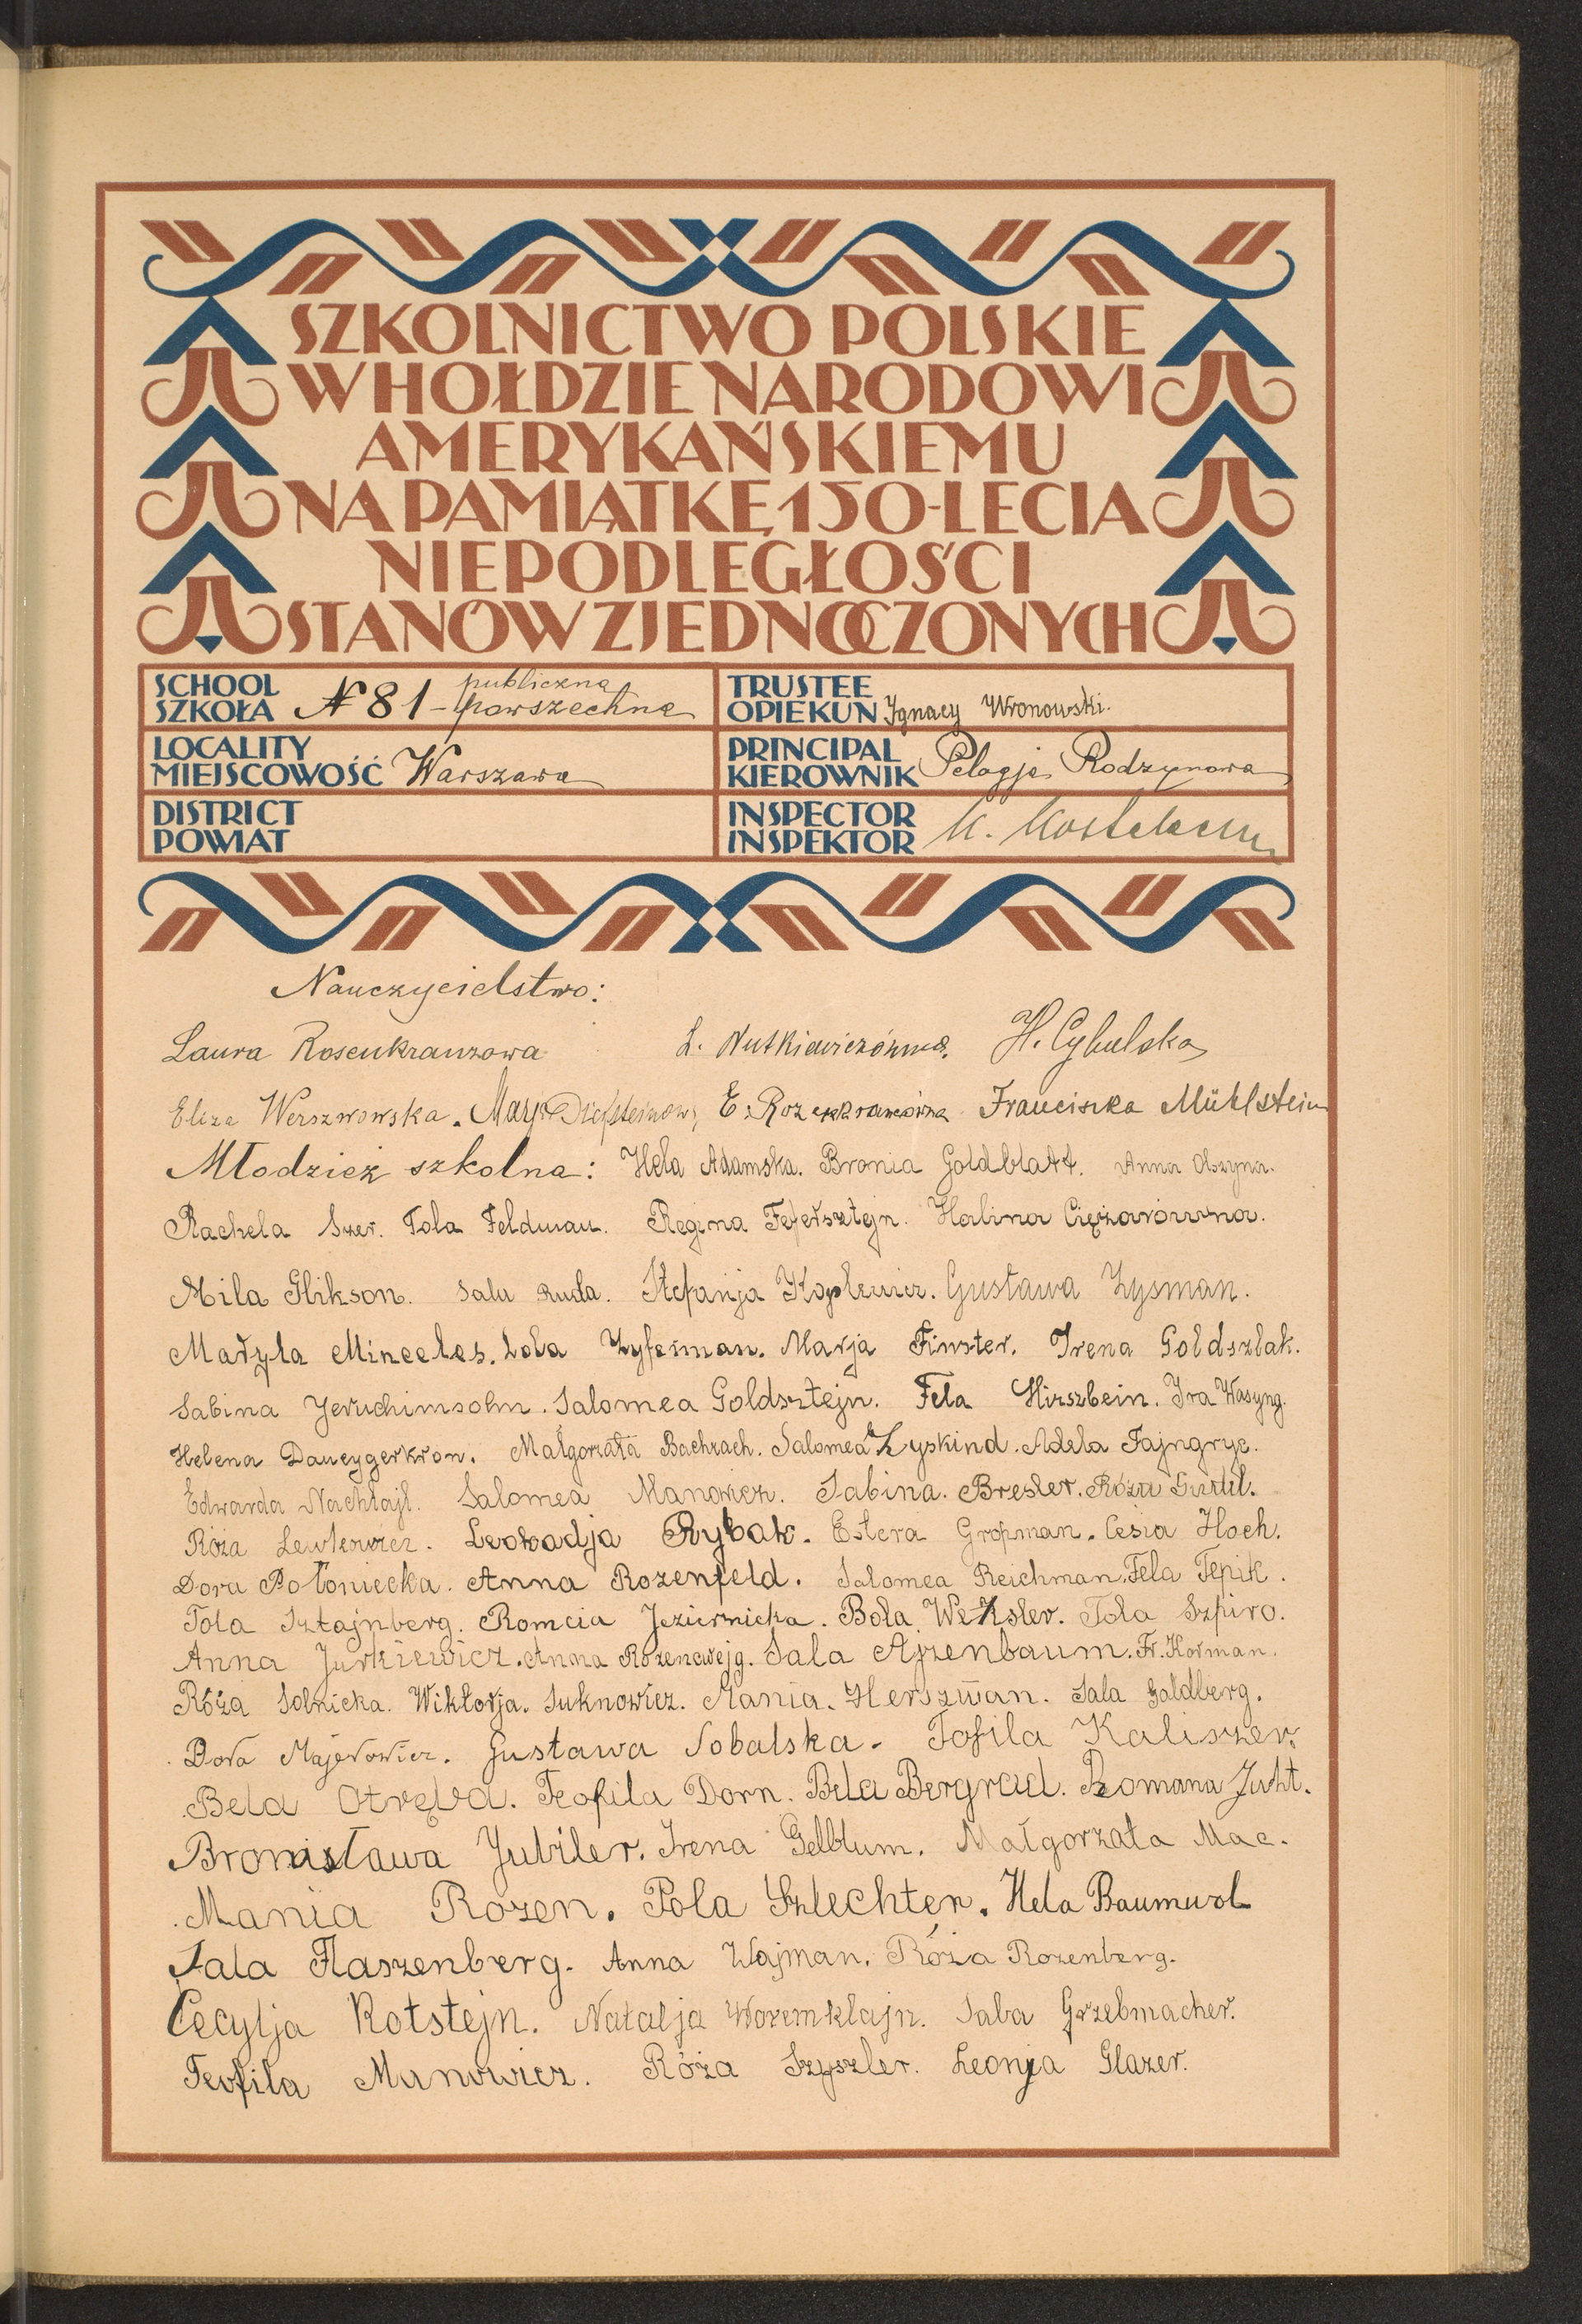 SZKOLNICTWO POLSKIE
W HOŁDZIE NARODOWI
AMERYKAŃSKIEMU
NA PAMIĄTKĘ 150-LECIA
NIEPODLEGŁOŚCI
STANÓW ZJEDNOCZONYCH
SCHOOL
SZKOŁA № 81 - publiczna powszechna
TRUSTEE
OPIEKUN Ignacy Wronowski.
LOCALITY
MIEJSCOWOŚĆ Warszawa
PRINCIPAL
KIEROWNIK Pelagja Rodzynowa
DISTRICT
POWIAT
INSPECTOR
INSPEKTOR
Nauczycielstwo:
Laura Rosenkranzowa L. Nutkiewiczówna. H. Cybulska
Eliza Werszwowska. E. Rozenkranzówna Franciszka Mühlstein
Młodzież szkolna: Hela Adamska. Bronia Goldblatt. Anna Olszyna.
Rachela Szer. Tola Feldman. Regina Fefersztejn. Halina Ciężarówna.
Mila Glikson. Sala Ruda. Stefanja Koplewicz. Gustawa Zysman.
Maryla Minceles. Lola Zyferman. Marja Finster. Irena Goldszlak.
Sabina Jeruchimsohn. Salomea Goldsztejn. Fela Hirszbein. Ira Wasyng.
Helena Dancygerkron. Małgorzata Bachrach. Salomea Zyskind. Adela Fajngryc.
Edwarda Nachtajl. Salomea Manowicz. Sabina. Bresler. Róża
Róża Lewkowicz. Leokadja Rybak. Estera Gropman. Cesia Hoch.
Dora Połoniecka. Anna Rozenfeld. Salomea Reichman. Fela Tepik.
Tola Sztajnberg. Romcia Jeziernicka. Bola Weksler. Tola Szpiro.
Anna Jurkiewicz. Anna Rozencwejg. Sala Ajzenbaum. Fr. Korman.
Róża Solnicka. Wiktorja. Suknowicz. Mania. Herszman. Sala Goldberg.
Dora Majerowicz. Gustawa Sobalska. Tofila Kaliszer.
Bela Otręba. Teofila Dorn. Bela Bergrad. Romana Juht.
Bronisława Jubiler. Irena Gelblum. Małgorzata Mac.
Mania Rozen. Pola Szlechter. Hela Baumwol
Sala Flaszenberg. Anna Wajman. Róża Rozenberg.
Cecylja Rotstejn. Natalja Woremklajn. Saba Grzebmacher.
Teofila Manowicz. Róża Szyszler. Leonja Glazer.